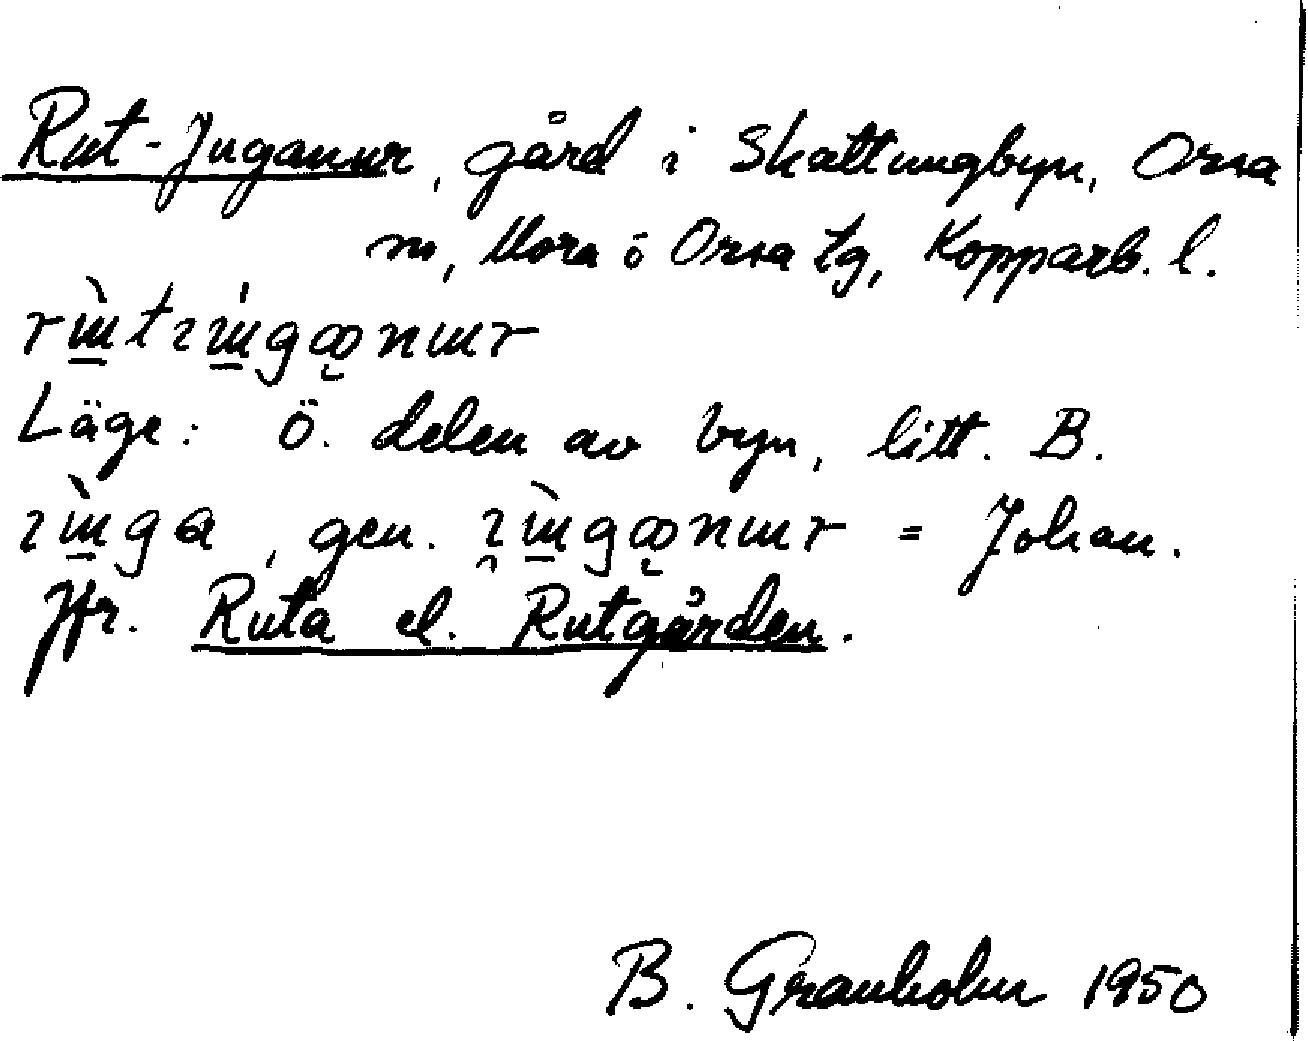 Rut-Juganur, gård i Skattungbyn, Orsa
sn, Mora o Orsa tg, Kopparb. l.
Läge: Ö. delen av byn, litt. B.
gen. = Johan.
Jfr. Ruta el. Rutgården.
B. Granholm 1950